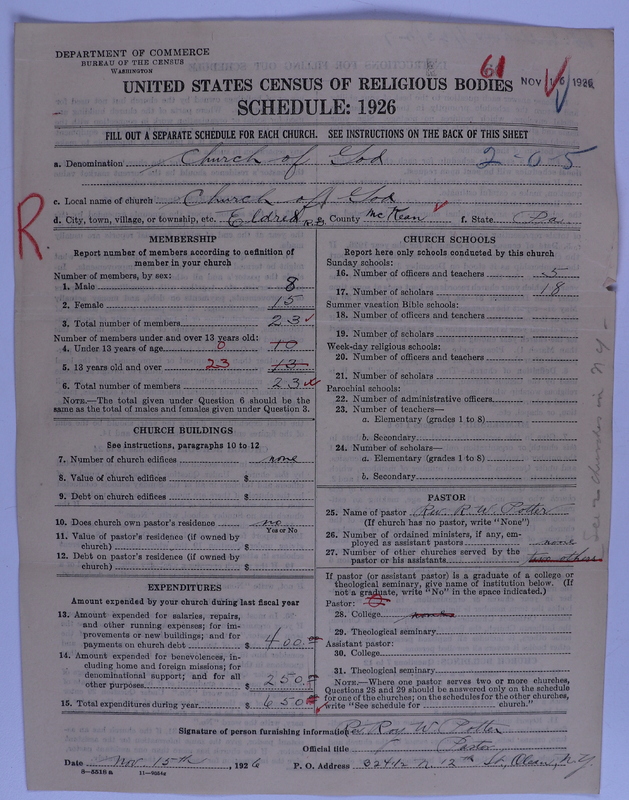 DEPARTMENT OF COMMERCE
BUREAU OF THE CENSUS
WASHINGTON
61
NOV 16 1926
UNITED STATES CENSUS OF RELIGIOUS BODIES
SCHEDULE: 1926
FILL OUT A SEPARATE SCHEDULE FOR EACH CHURCH. SEE INSTRUCTIONS ON THE BACK OF THIS SHEET
a. Denomination Church of God 2-05
c. Local name of church Church of God
R
d. City, town, village, or township, etc. Eldred R.D. County McKean f. State Pa.
MEMBERSHIP
Report number of members according to definition of
member in your church
Number of members, by sex:
1. Male 8
2. Female 15
3. Total number of members 23
Number of members under and over 13 years old:
4. Under 13 years of age 0 10
5. 13 years old and over 23 13
6. Total number of members 23
NOTE.—The total given under Question 6 should be
same as the total of males and females given under Question 3.
CHURCH BUILDINGS
See instructions, paragraphs 10 to 12
7. Number of church edifices none
8. Value of church edifices $
9. Debt on church edifices $
10. Does church own pastor's residence no
Yes or No
11. Value of pastor's residence (if owned by
church) $
12. Debt on pastor's residence (if owned by
church) $
EXPENDITURES
Amount expended by your church during last fiscal year
13. Amount expended for salaries, repairs,
and other running expenses; for im-
provements or new buildings; and for
payments on church debt $ 400
14. Amount expended for benevolences, in-
cluding home and foreign missions; for
denominational support; and for all
other purposes $ 250
15. Total expenditures during year $ 650
CHURCH SCHOOLS
Report here only schools conducted by this church
Sunday schools:
16. Number of officers and teachers 5
17. Number of scholars 18
Summer vacation Bible schools:
18. Number of officers and teachers
19. Number of scholars
Week-day religious schools:
20. Number of officers and teachers
21. Number of scholars
Parochial schools:
22. Number of administrative officers
23. Number of teachers—
a. Elementary (grades 1 to 8)
b. Secondary
24. Number of scholars—
a. Elementary (grades 1 to 8)
b. Secondary
PASTOR
25. Name of pastor Rev. R. W. Potter
(If church has no pastor, write "None")
26. Number of ordained ministers, if any, em-
ployed as assistant pastors none
27. Number of other churches served by the
pastor or his assistants two others
If pastor (or assistant pastor) is a graduate of a college or
theological seminary, give name of institution below. (If
not a graduate, write "No" in the space indicated.)
Pastor:
28. College
29. Theological seminary
Assistant pastor:
30. College
31. Theological seminary
NOTE.—Where one pastor serves two or more churches,
Questions 28 and 29 should be answered only on the schedule
for one of the churches; on the schedules for the other churches,
write "See schedule for church."
See 2 churches in N Y -
Signature of person furnishing information Rev Roy W. Potter
Official title Pastor
Date Nov. 15th, 1926 P. O. Address 324 1/2 N 12th St, Olean, N.Y.
8—5518 a 11—9284a